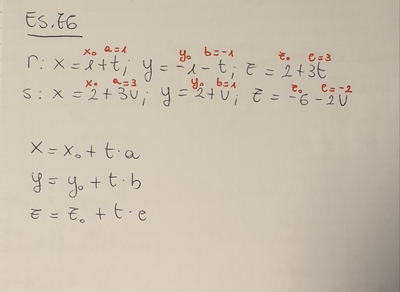 ES. E6
x₀ a=1 y₀ b=-1 z₀ c=3
r: x = 1+t; y = -1-t; z = 2+3t
x₀ a=3 y₀ b=1 z₀ c=-2
s: x = 2+3u; y = 2+u; z = -6-2u
x = x₀ + t·a
y = y₀ + t·b
z = z₀ + t·c